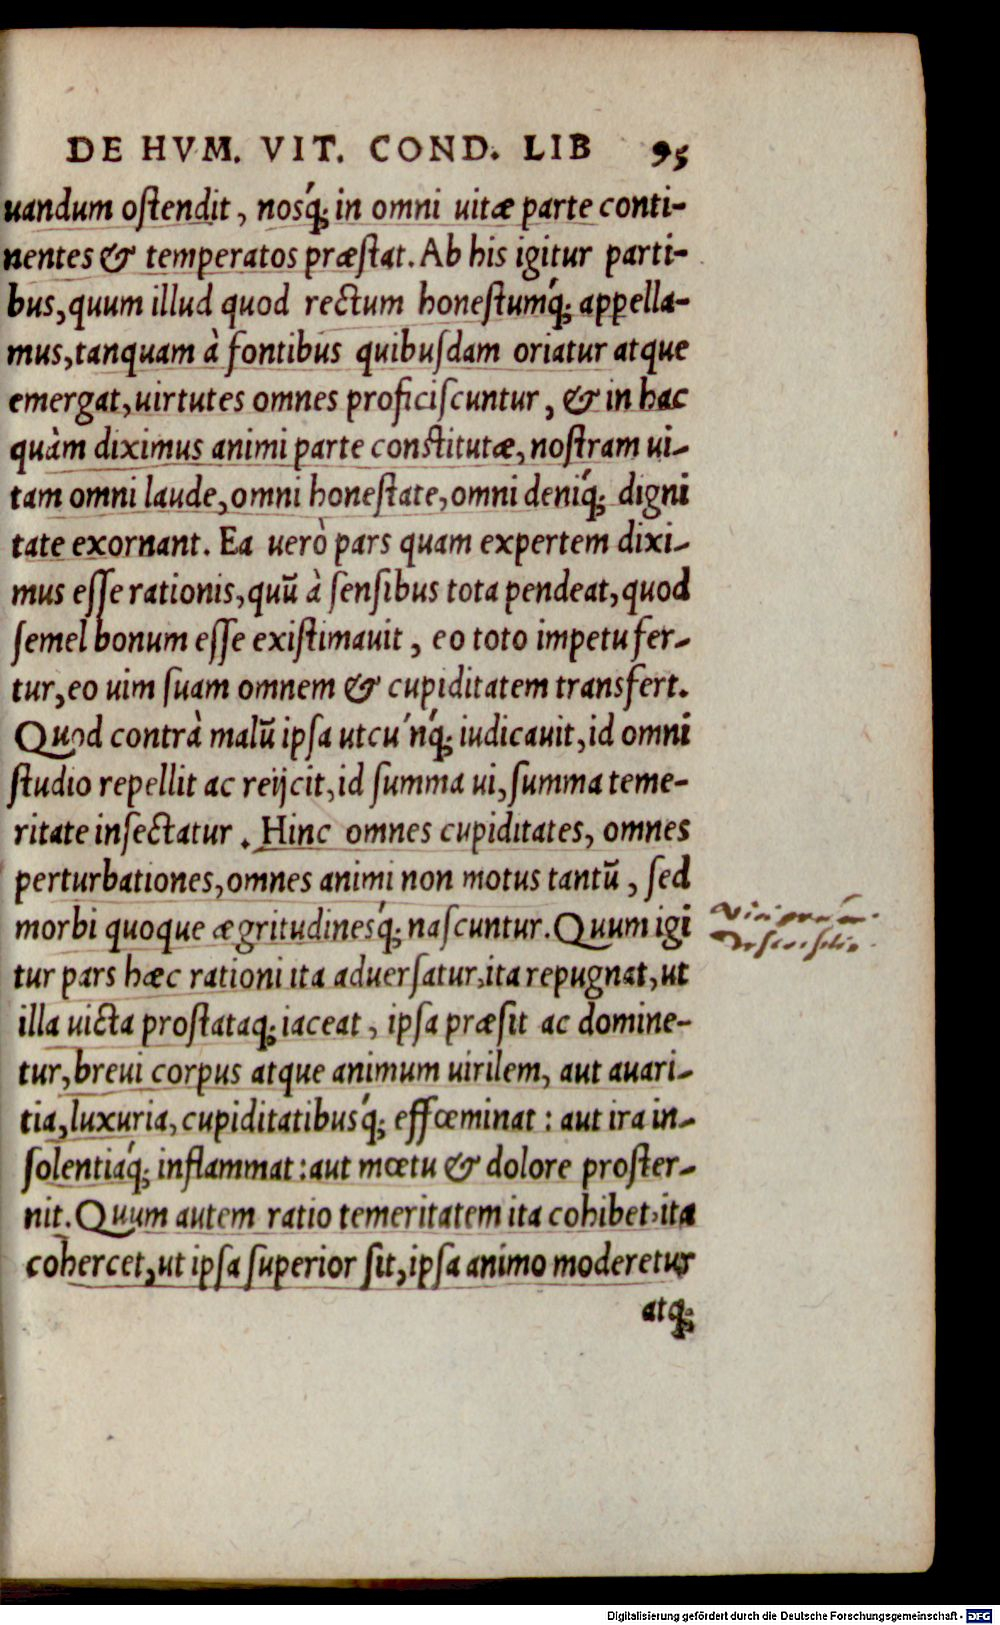 DE HVM. VIT. COND. LIB 95
uandum oſtendit, nosq́; in omni uitæ parte conti-
nentes & temperatos præſtat. Ab his igitur parti-
bus, quum illud quod rectum honeſtumq́; appella-
mus, tanquam à fontibus quibuſdam oriatur atque
emergat, uirtutes omnes proficiſcuntur, & in hac
quàm diximus animi parte conſtitutæ, noſtram ui-
tam omni laude, omni honeſtate, omni deniq́; digni
tate exornant. Ea uerò pars quam expertem dixi-
mus eſſe rationis, quū à ſenſibus tota pendeat, quod
ſemel bonum eſſe exiſtimauit, eo toto impetu fer-
tur, eo uim ſuam omnem & cupiditatem transfert.
Quod contrà malū ipſa utcúnq́; iudicauit, id omni
ſtudio repellit ac reijcit, id ſumma ui, ſumma teme-
ritate inſectatur. Hinc omnes cupiditates, omnes
perturbationes, omnes animi non motus tantū, ſed
morbi quoque ægritudinesq́; naſcuntur. Quum igi
tur pars hæc rationi ita aduerſatur, ita repugnat, ut
illa uicta proſtataq; iaceat, ipſa præſit ac domine-
tur, breui corpus atque animum uirilem, aut auari-
tia, luxuria, cupiditatibusq́; effœminat: aut ira in-
ſolentiaq́; inflammat: aut mœtu & dolore proſter-
nit. Quum autem ratio temeritatem ita cohibet, ita
cohercet, ut ipſa ſuperior ſit, ipſa animo moderetur
atq;
Digitalisierung gefördert durch die Deutsche Forschungsgemeinschaft - DFG